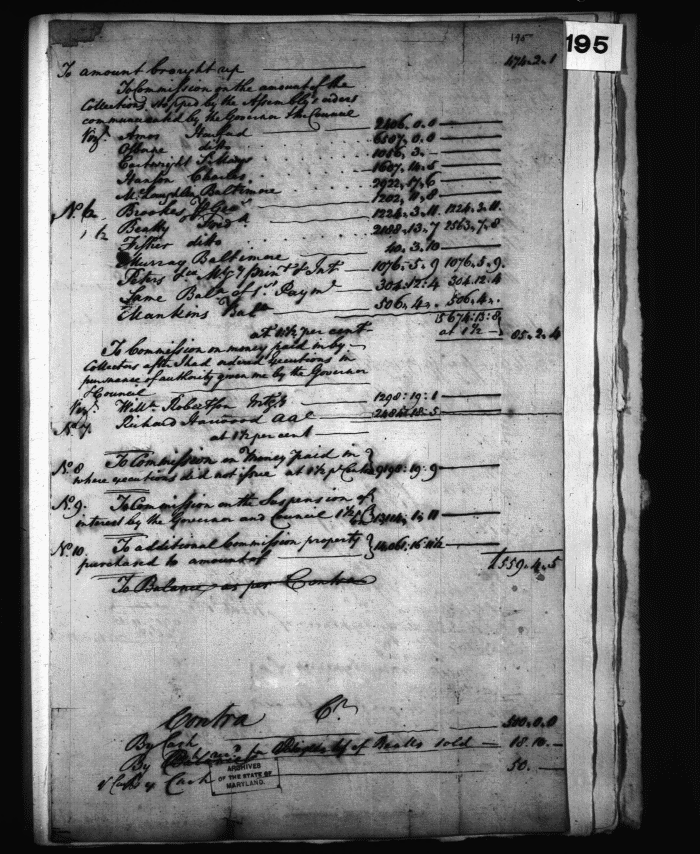 195
195
To amount brought up 474.2.1
To Commission on the amount of the
Collections stopped by the Assembly's orders
communicated by the Governor & the Council
Vizt. Amos 2406.0.0
Osborne ditto 6507.0.0
Cartwright St Marys 1056.3.
Hanson Charles 1607.14.6
McLaughlin Baltimore 2922.17.6
1202.11.8
No. 6 Brookes 1224.3.11 1224.3.11
Beatty Fredk 2188.13.7 2563.7.8
Fisher ditto
Murray Baltimore 40.3.10
Peters 1076.5.9 1076.5.9
Same Bale of 1st Paymt 304.12.4 304.12.4
Mankins Bale 506.4. 506.4.
15674:13:8
at 1½ per cent at 1½ 85.2.4
To Commission on money paid in by
Collectors after I had ordered executions in
pursuance of authority given me by the Governor
& Council
Vizt. Willm Robertson 1298:19:1
No. 7. Richard Harwood AAC 2484:18:5
at 1½ per cent
No. 8 To Commission on money paid in
where executions did not issue at 1½ 9198:19:9
No. 9. To Commission on the Suspension of
interest by the Governor and Council 1½
No. 10. To additional Commission property
purchased to amount of
1559.4.5
To Balance as per Contra
Contra Cr.
By Cash 500.0.0
By of Realls sold 18.10.
Cash 50.
ARCHIVES
OF THE STATE OF
MARYLAND.